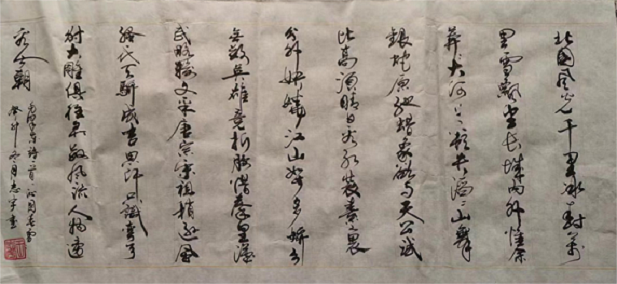 北国风光千里冰封万
里雪飘望长城内外惟余
莽大河上下顿失滔滔山舞
银蛇原驰蜡象欲与天公试
比高须晴日看红装素裹
分外妖娆江山如此多娇引
无数英雄竞折腰惜秦皇汉
武略输文采唐宗宋祖稍逊风
骚一代天骄成吉思汗只识弯弓
射大雕俱往矣数风流人物还
看今朝
沁园春雪
癸卯年月志书